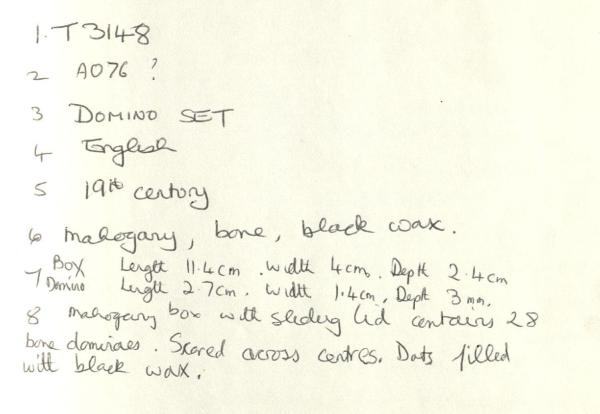 1. T 3148
2 A076 ?
3 DOMINO SET
4 English
5 19th century
6 mahogany, bone, black wax.
7 Box Length 11.4cm. Width 4cm. Depth 2.4cm
Domino Length 2.7cm. Width 1.4cm, Depth 3mm.
8 mahogany box with sliding lid contains 28
bone dominoes. Scored across centres. Dots filled
with black wax.